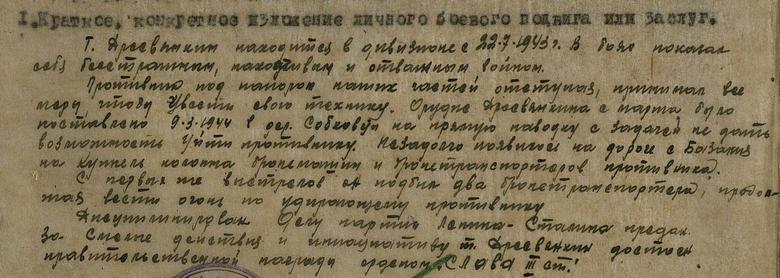 I. Краткое, конкретное изложение личного боевого подвига или заслуг.
Т. Древянкин находится в дивизионе с 22.7.1943 г. В боях показал
себя бесстрашным, находчивым и отважным воином.
Противник под напором наших частей отступая, принимал все
меры чтобы увести свою технику. Орудие Древянкина с марта было
поставлено 9.3.1944 в дер. на прямую наводку с задачей не дать
возможность уйти противнику. Незадолго появилась на дороге с Базалия
на Купель колонна бронемашин и бронетранспортеров противника.
С первых же выстрелов он подбил два бронетранспортера, продол-
жая вести огонь по удирающему противнику
Дисциплинирован. Делу партии Ленина-Сталина предан.
За смелые действия и инициативу т. Древянкин достоин
правительственной награды орденом „Слава III ст.“